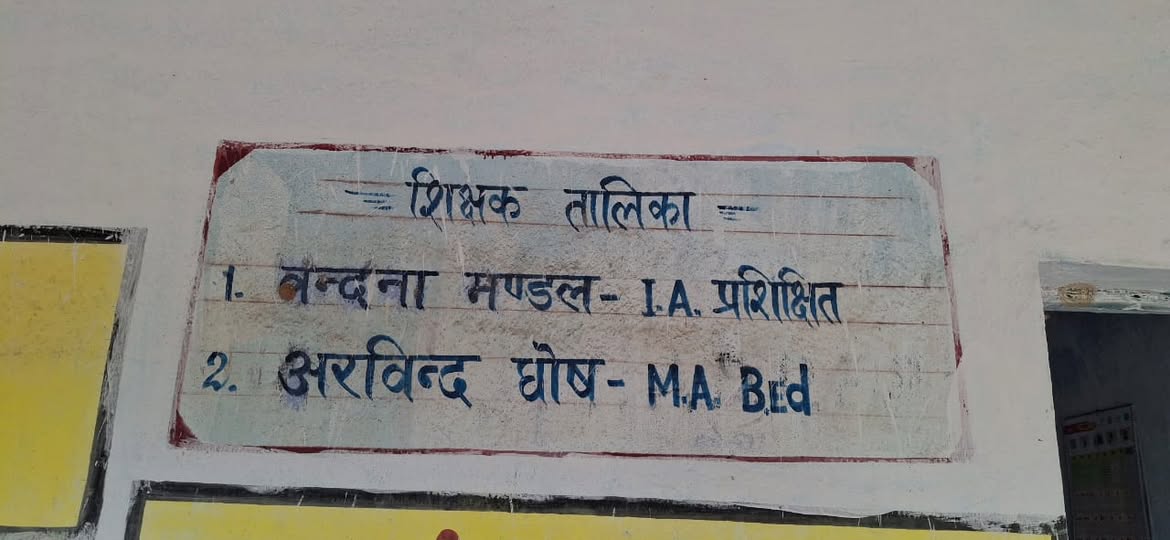 शिक्षक तालिका
1. वन्दना मण्डल - I.A. प्रशिक्षित
2. अरविन्द घोष - M.A. B.Ed